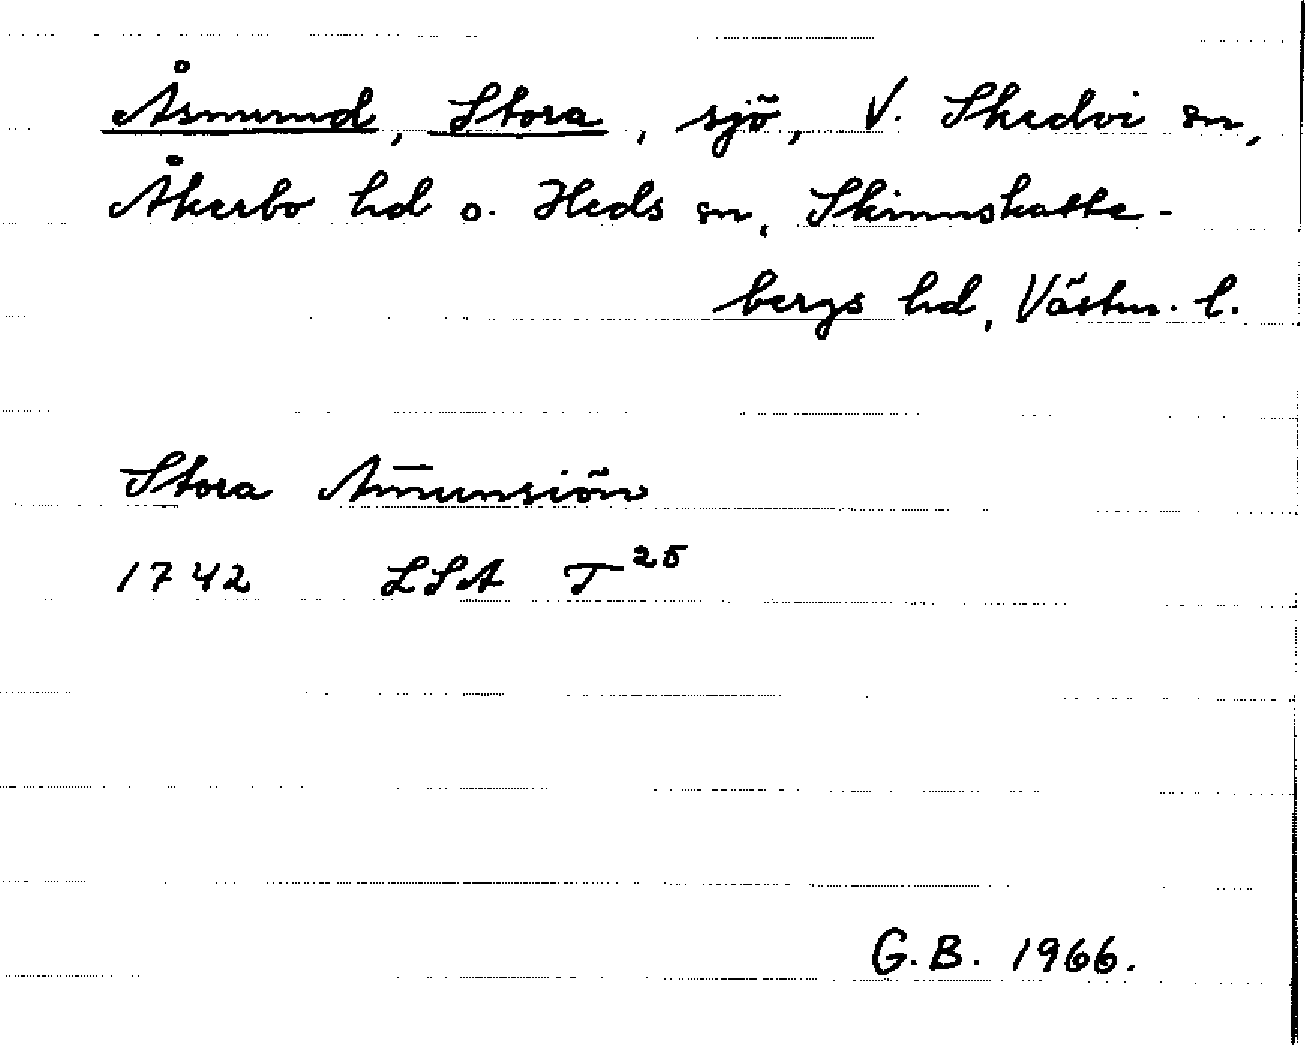 Åsmund, Stora, sjö, V. Skedvi sn,
Åkerbo hd o. Heds sn, Skinnskatte-
bergs hd, Västm. l.
Stora Am̄unsiön
1742 LSA T²⁵
G.B. 1966.